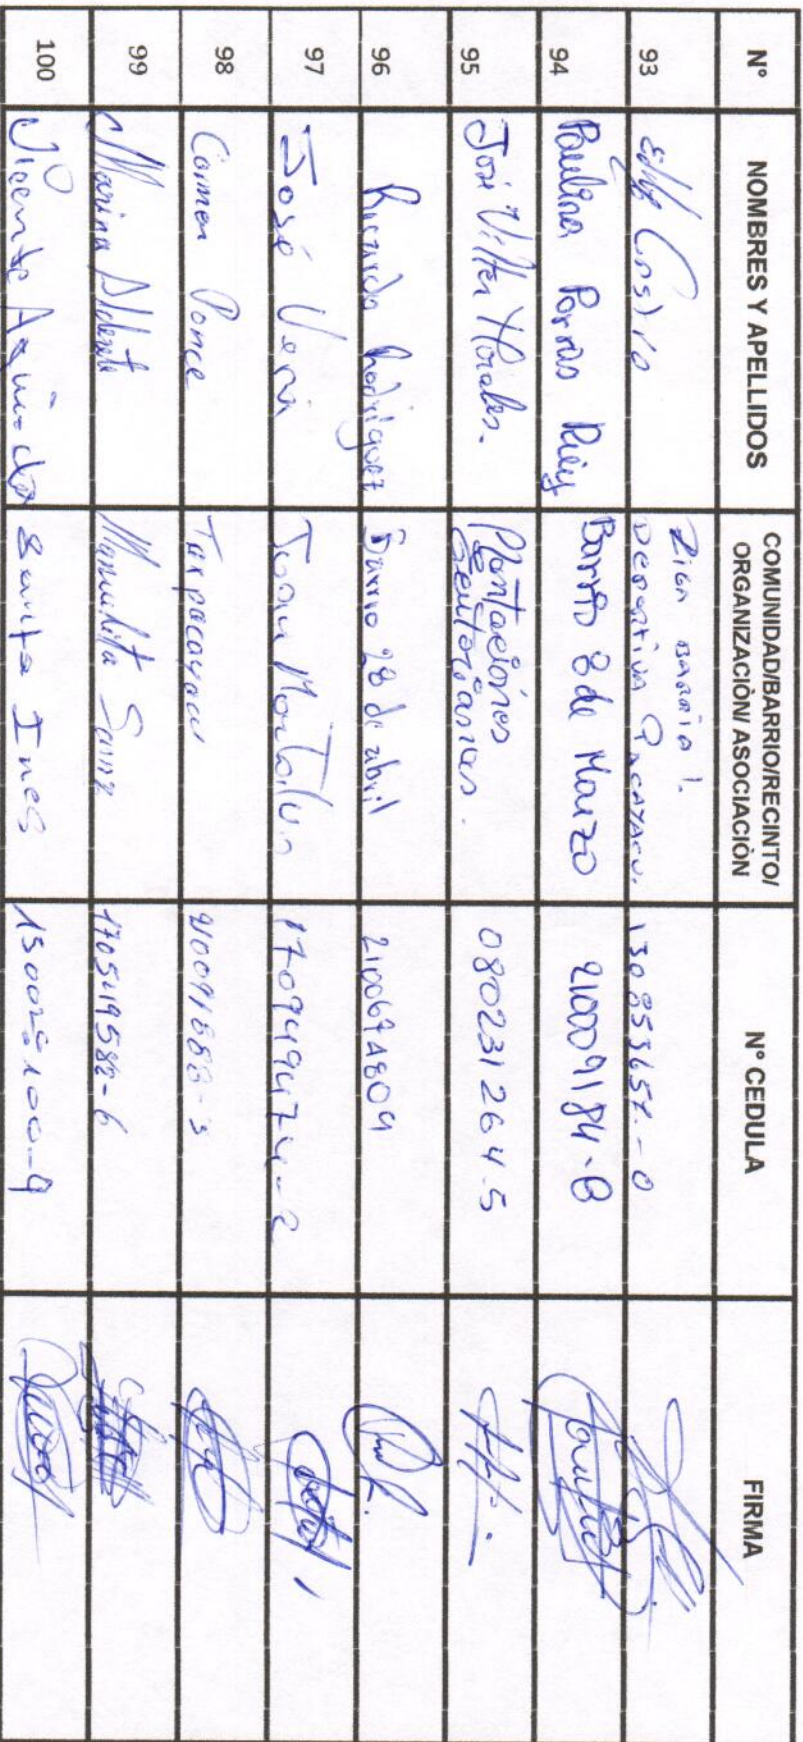 N° NOMBRES Y APELLIDOS COMUNIDAD/BARRIO/RECINTO/ ORGANIZACIÒN/ ASOCIACIÒN N° CEDULA FIRMA
93 Castro Liga Barrial Deportiva Pacayacu. 130853657.-0
94 Paulina Porras Barrio 8 de Marzo 210009184-8
95 José Villen Morales. Plantaciones 080231264-5
96 Ricardo Rodriguez Barrio 28 de abril 2100674809
97 José Vera Juan Montalvo 170949474-2
98 Carmen Ponce Tarpacayacu 210091888-3
99 Marina Manuelita Saenz 170519588-6
100 Vicente Santa Ines 150028100-9